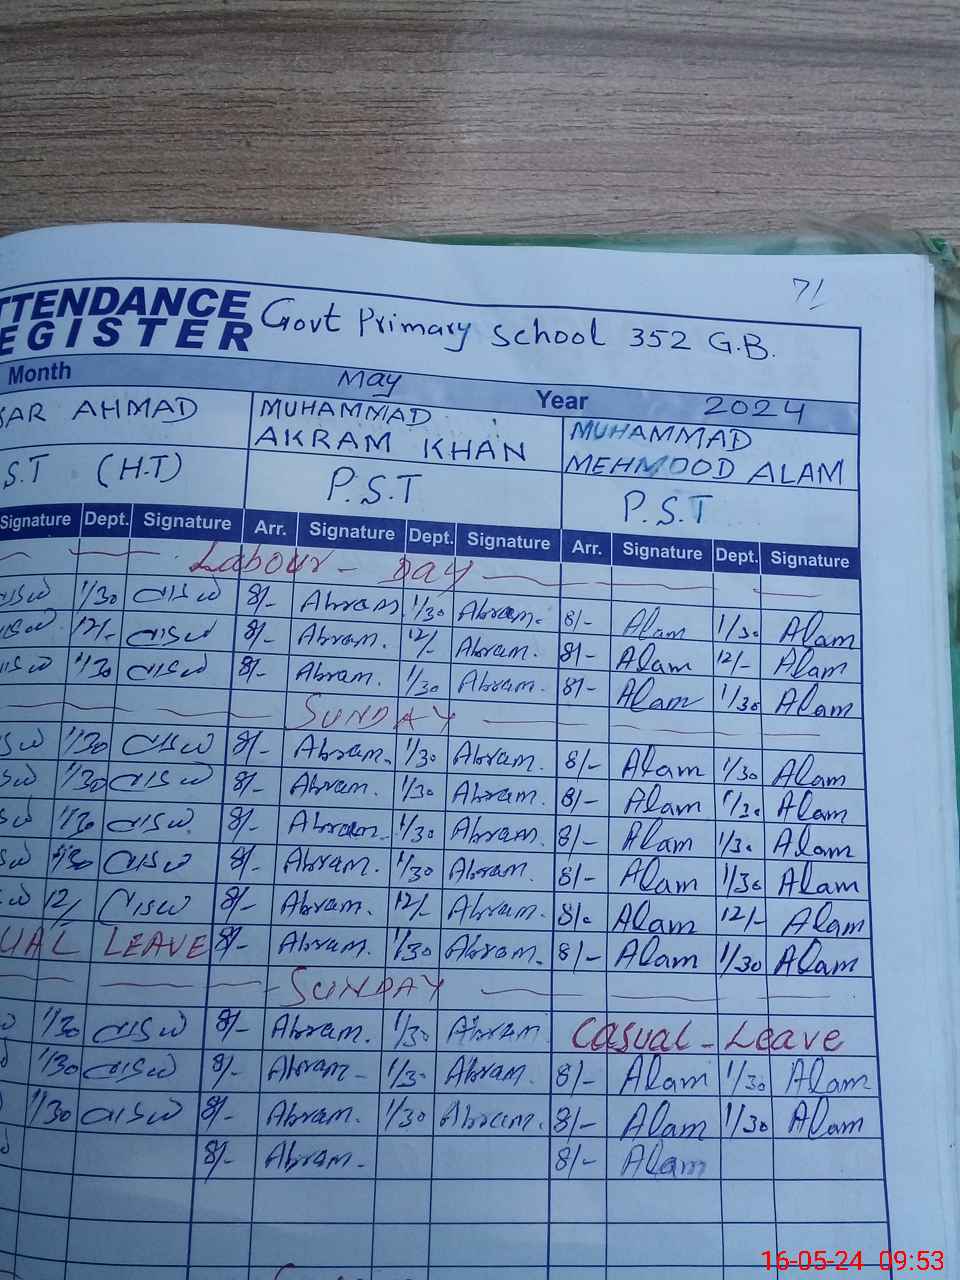 71
TTENDANCE
EGISTER Govt Primary School 352 G.B.
Month May Year 2024
SAR AHMAD MUHAMMAD AKRAM KHAN MUHAMMAD MEHMOOD ALAM
S.T (H.T) P.S.T P.S.T
Signature Dept. Signature Arr. Signature Dept. Signature Arr. Signature Dept. Signature
Labour - Day
1/30 8/- Akram. 1/30 Akram. 8/- Alam 1/30 Alam
12/- 8/- Akram. 12/- Akram. 8/- Alam 12/- Alam
1/30 8/- Akram. 1/30 Akram. 8/- Alam 1/30 Alam
SUNDAY
1/30 8/- Akram. 1/30 Akram. 8/- Alam 1/30 Alam
1/30 8/- Akram. 1/30 Akram. 8/- Alam 1/30 Alam
1/30 8/- Akram. 1/30 Akram. 8/- Alam 1/30 Alam
1/30 8/- Akram. 1/30 Akram. 8/- Alam 1/30 Alam
12/ 8/- Akram. 12/- Akram. 8/- Alam 12/- Alam
UAL LEAVE 8/- Akram. 1/30 Akram. 8/- Alam 1/30 Alam
SUNDAY
1/30 8/- Akram. 1/30 Akram. Casual - Leave
1/30 8/- Akram. 1/30 Akram. 8/- Alam 1/30 Alam
1/30 8/- Akram. 1/30 Akram. 8/- Alam 1/30 Alam
8/- Akram. 8/- Alam
16-05-24 09:53